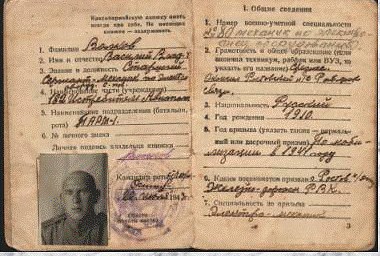 Красноармейскую книжку иметь
всегда при себе. Не имеющих
книжек — задерживать.
1. Фамилия Волков
2. Имя и отчество Василий
3. Звание и должность Старший
Сержант
4. Наименование части (учреждения)
Истребительн Авиапол
5. Наименование подразделения (батальон,
рота)
6. № личного знака
Личная подпись владельца книжки
Волков
Командир
194
I. Общие сведения
1. Номер военно-учетной специальности
№ 80 механик по электро
оборудованию
2. Грамотность и общее образование (если
окончил техникум, рабфак или ВУЗ, то
указать его название)
Окончил
3. Национальность Русский
4. Год рождения 1910
5. Год призыва (указать также — нормаль-
ный или досрочный призыв) По моби-
лизации в 1941 году
6. Каким военкоматом призван г. Ростов
Железно-дорожн РВК.
7. Специальность до призыва
Электро-механик
3